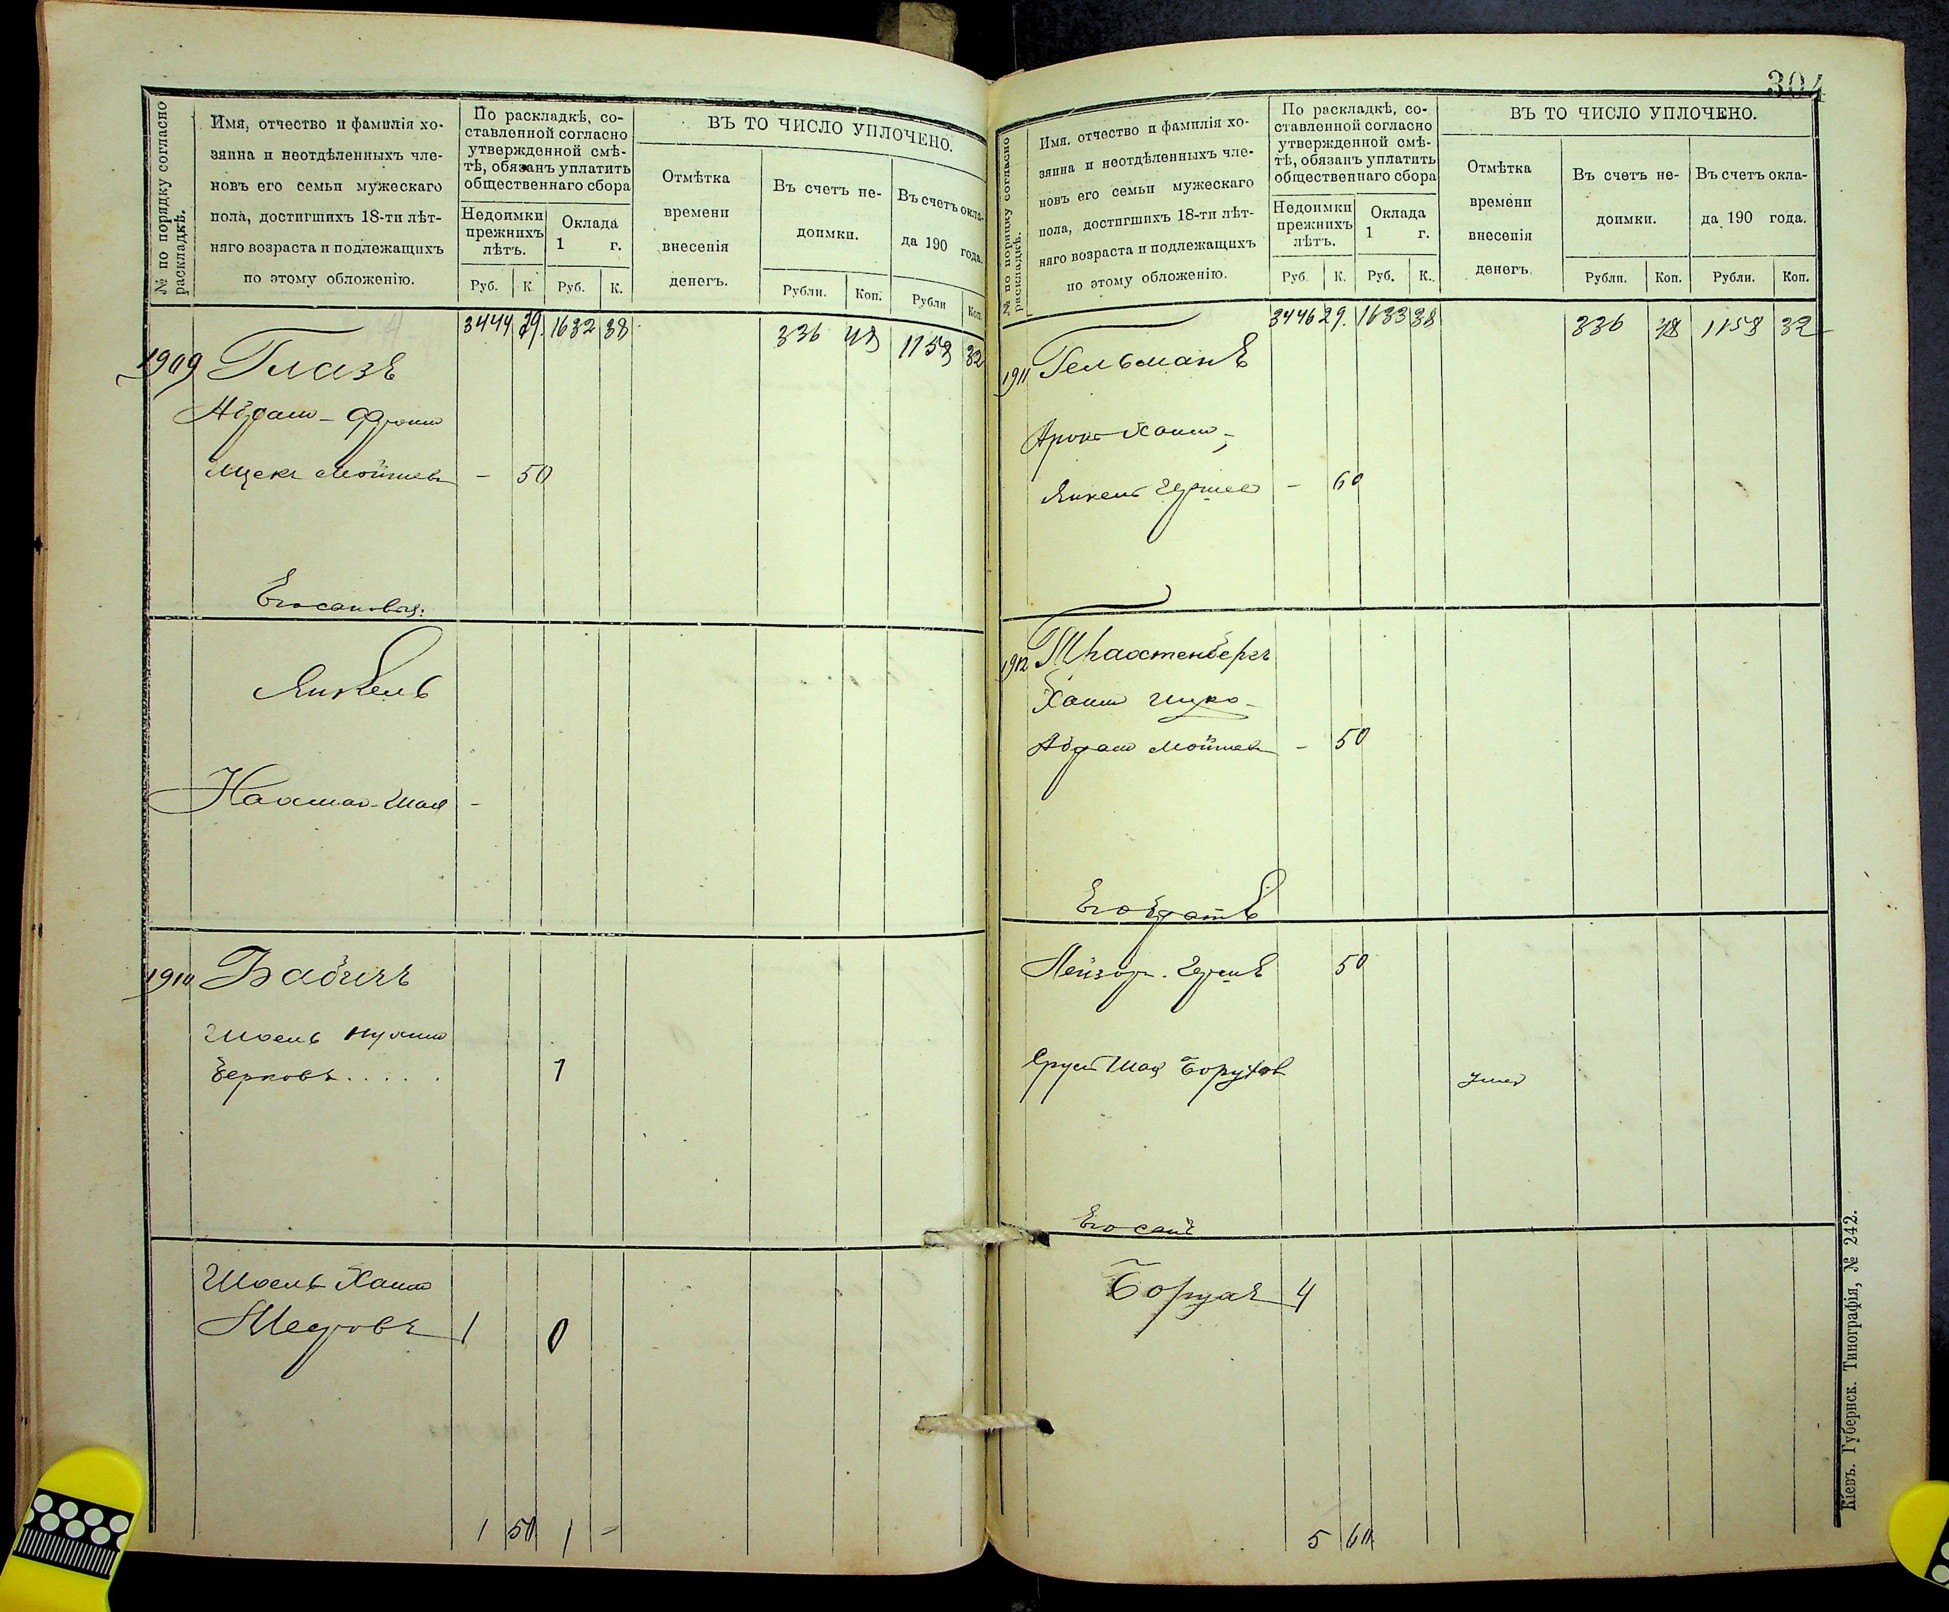 № по порядку согласно раскладкѣ.
Имя, отчество и фамилія хо-
зяина и неотдѣленныхъ чле-
новъ его семьи мужескаго
пола, достигшихъ 18-ти лѣт-
няго возраста и подлежащихъ
по этому обложенію.
По раскладкѣ, со-
ставленной согласно
утвержденной смѣ-
тѣ, обязанъ уплатить
общественнаго сбора
Недоимки
прежнихъ
лѣтъ.
Оклада
1 г.
Руб. К. Руб. К.
ВЪ ТО ЧИСЛО УПЛОЧЕНО.
Отмѣтка
времени
внесенія
денегъ.
Въ счетъ не-
доимки.
Въ счетъ окла-
да 190 года.
Рубли. Коп. Рубли Коп.
3444 29. 1632 38 336 48 1158 32
1909 Глазъ
Абрам-Фроим
Ицекъ Мойшевъ - 50
Его сановья:
Янкель
Нахман-Шая -
1910 Бабичъ
Шоель Нухим
Берковъ . . . . . 1
Шоель Хаим
Мееровъ 1 0
1 50 1 -
304
№ по порядку согласно раскладкѣ.
Имя, отчество и фамилія хо-
зяина и неотдѣленныхъ чле-
новъ его семьи мужескаго
пола, достигшихъ 18-ти лѣт-
няго возраста и подлежащихъ
по этому обложенію.
По раскладкѣ, со-
ставленной согласно
утвержденной смѣ-
тѣ, обязанъ уплатить
общественнаго сбора
Недоимки
прежнихъ
лѣтъ.
Оклада
1 г.
Руб. К. Руб. К.
ВЪ ТО ЧИСЛО УПЛОЧЕНО.
Отмѣтка
времени
внесенія
денегъ.
Въ счетъ не-
доимки.
Въ счетъ окла-
да 190 года.
Рубли. Коп. Рубли. Коп.
3446 29. 1633 38 336 48 1158 32
1911 Гельманъ
Арон-Хаим-
Янкель Гершев - 60
1912 Трахтенберг
Хаим Ицко-
Абрам Мойшев - 50
Его братъ
Лейзор-Гершъ 50
Сруль Шая Борухов умер
Его санъ
Борухъ 4
5 60
Кіевъ. Губернск. Типографія, № 242.